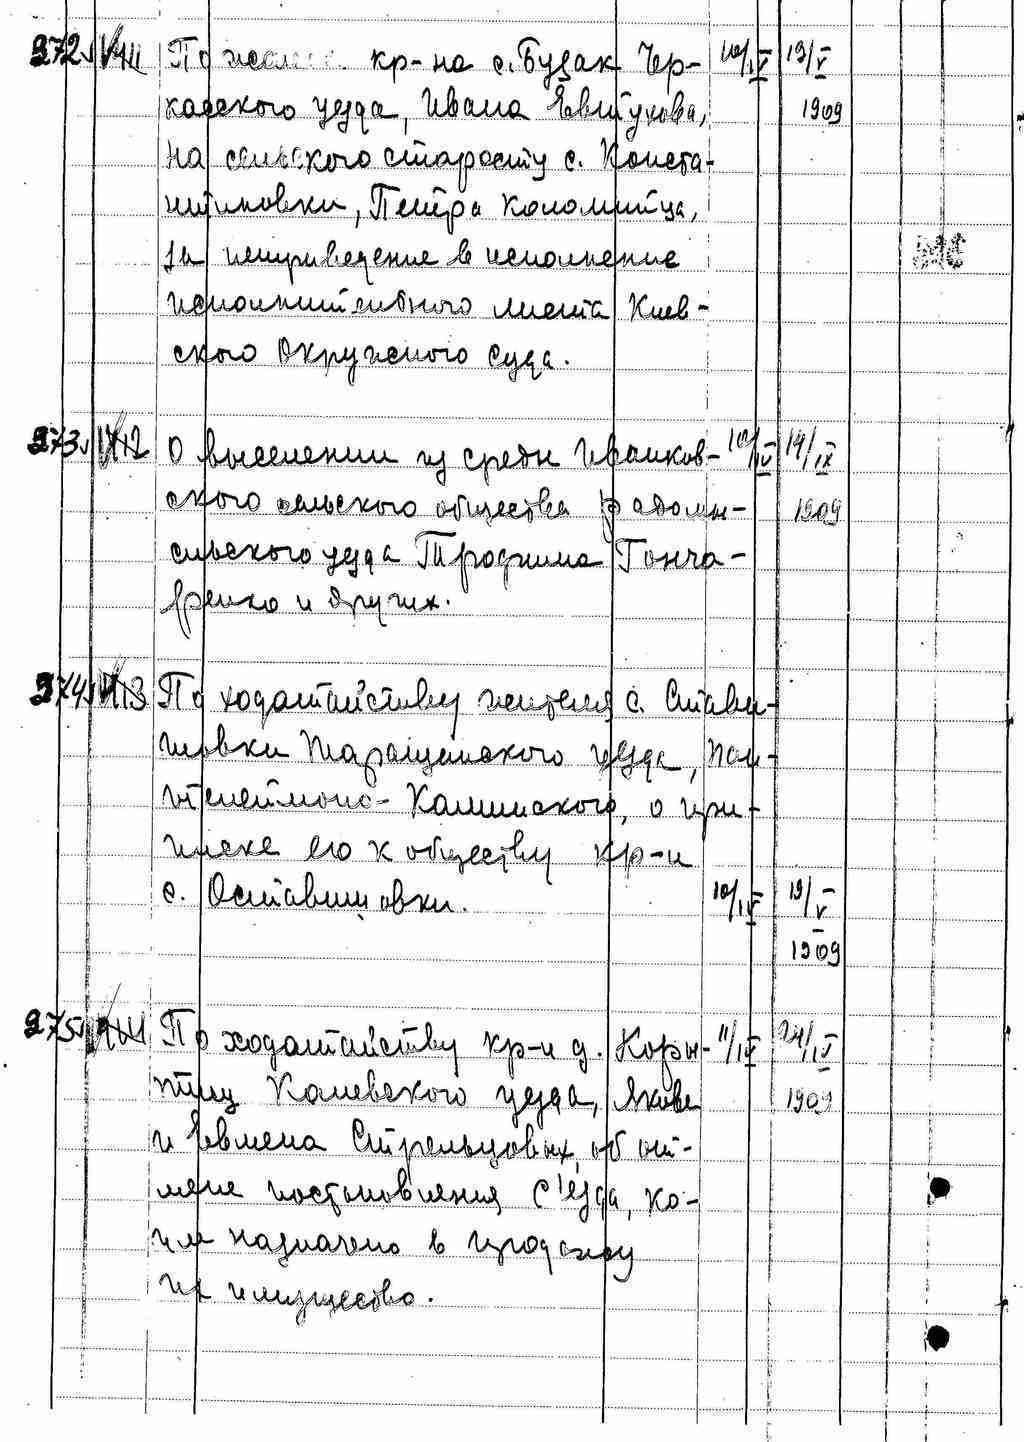 272 По жалобе кр-на с. Будак Чер- 10/IV 19/V
касского уезда, Ивана Евтухова, 1909
на сельского старосту с. Конста-
нтиновки, Петра Коломийца,
за неприведение в исполнение
исполнительного листа Киев-
ского Окружного суда.
273 О выселении из среды Иванков- 10/IV 14/IX
ского сельского общества Радомы- 1909
сльского уезда Трофима Гонча-
ренко и других.
274 По ходатайству жителя с. Стави-
шовки Таращанского уезда, Пан-
телеймона Калинского, о при-
писке его к обществу кр-н
с. Оставшовки. 10/IV 19/V
1909
275 По ходатайству кр-н д. Коры- 11/IV 24/IV
тищ Каневского уезда, Якова 1909
и Евмена Стрельцовых, об от-
мене постановления С'езда, ко-
им назначено в продажу
их имущество.